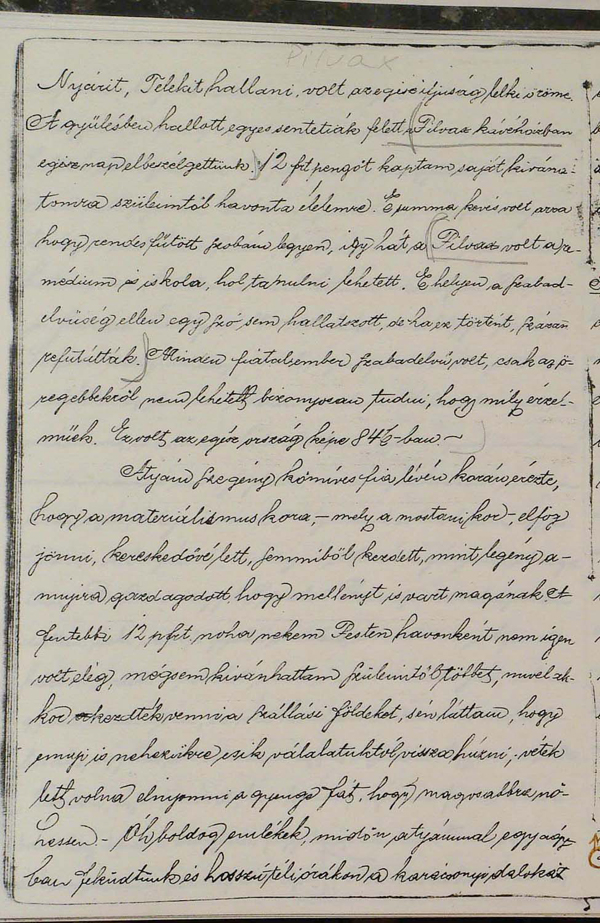 Pilvax
Nyárit, Telekit hallani, volt az egész ifjuság lelki öröme.
A gyülésben hallott egyes sententiák felett, a Pilvax kávéházban
egész nap elbeszélgettünk. 12 frt pengőt kaptam saját kiváná-
tomra szüleimtől havonta élelemre. E summa kevés volt arra
hogy rendes fűtött szobám legyen, igy hát a Pilvax volt a re-
médium és iskola, hol tanulni lehetett. E helyen a szabad-
elvüség ellen egy szó sem hallatszott, de ha ez történt, százan
refutálták. Minden fiatal ember szabadelvü volt, csak az ö-
regebbekről nem lehetett bizonyosan tudni, hogy mily érzel-
müek. Ez volt az egész ország képe 847-ban. –
Atyám szegény kőmíves fia lévén korán érezte,
hogy a materiálismus kora, – mely a mostani kor –, elfog
jönni, kereskedővé lett, semmiből kezdett, mint legény a-
nnyira gazdagodott, hogy mellényt is vart magának. A
fentebbi 12 pfrt, noha nekem Pesten havonként nem igen
volt elég, mégsem kivánhattam szüleimtől többet, mivel ak-
kor kezdték venni a szállási földeket, s én láttam, hogy
ennyi is nehezükre esik válalatuktól vissza húzni; vétek
lett volna elnyomni a gyenge fát, hogy magosabbra nö-
hessen. – Óh boldog emlékek, midőn atyámmal egy ágy-
ban feküdtünk és hosszú téli órákon a karácsonyi dalokat
5